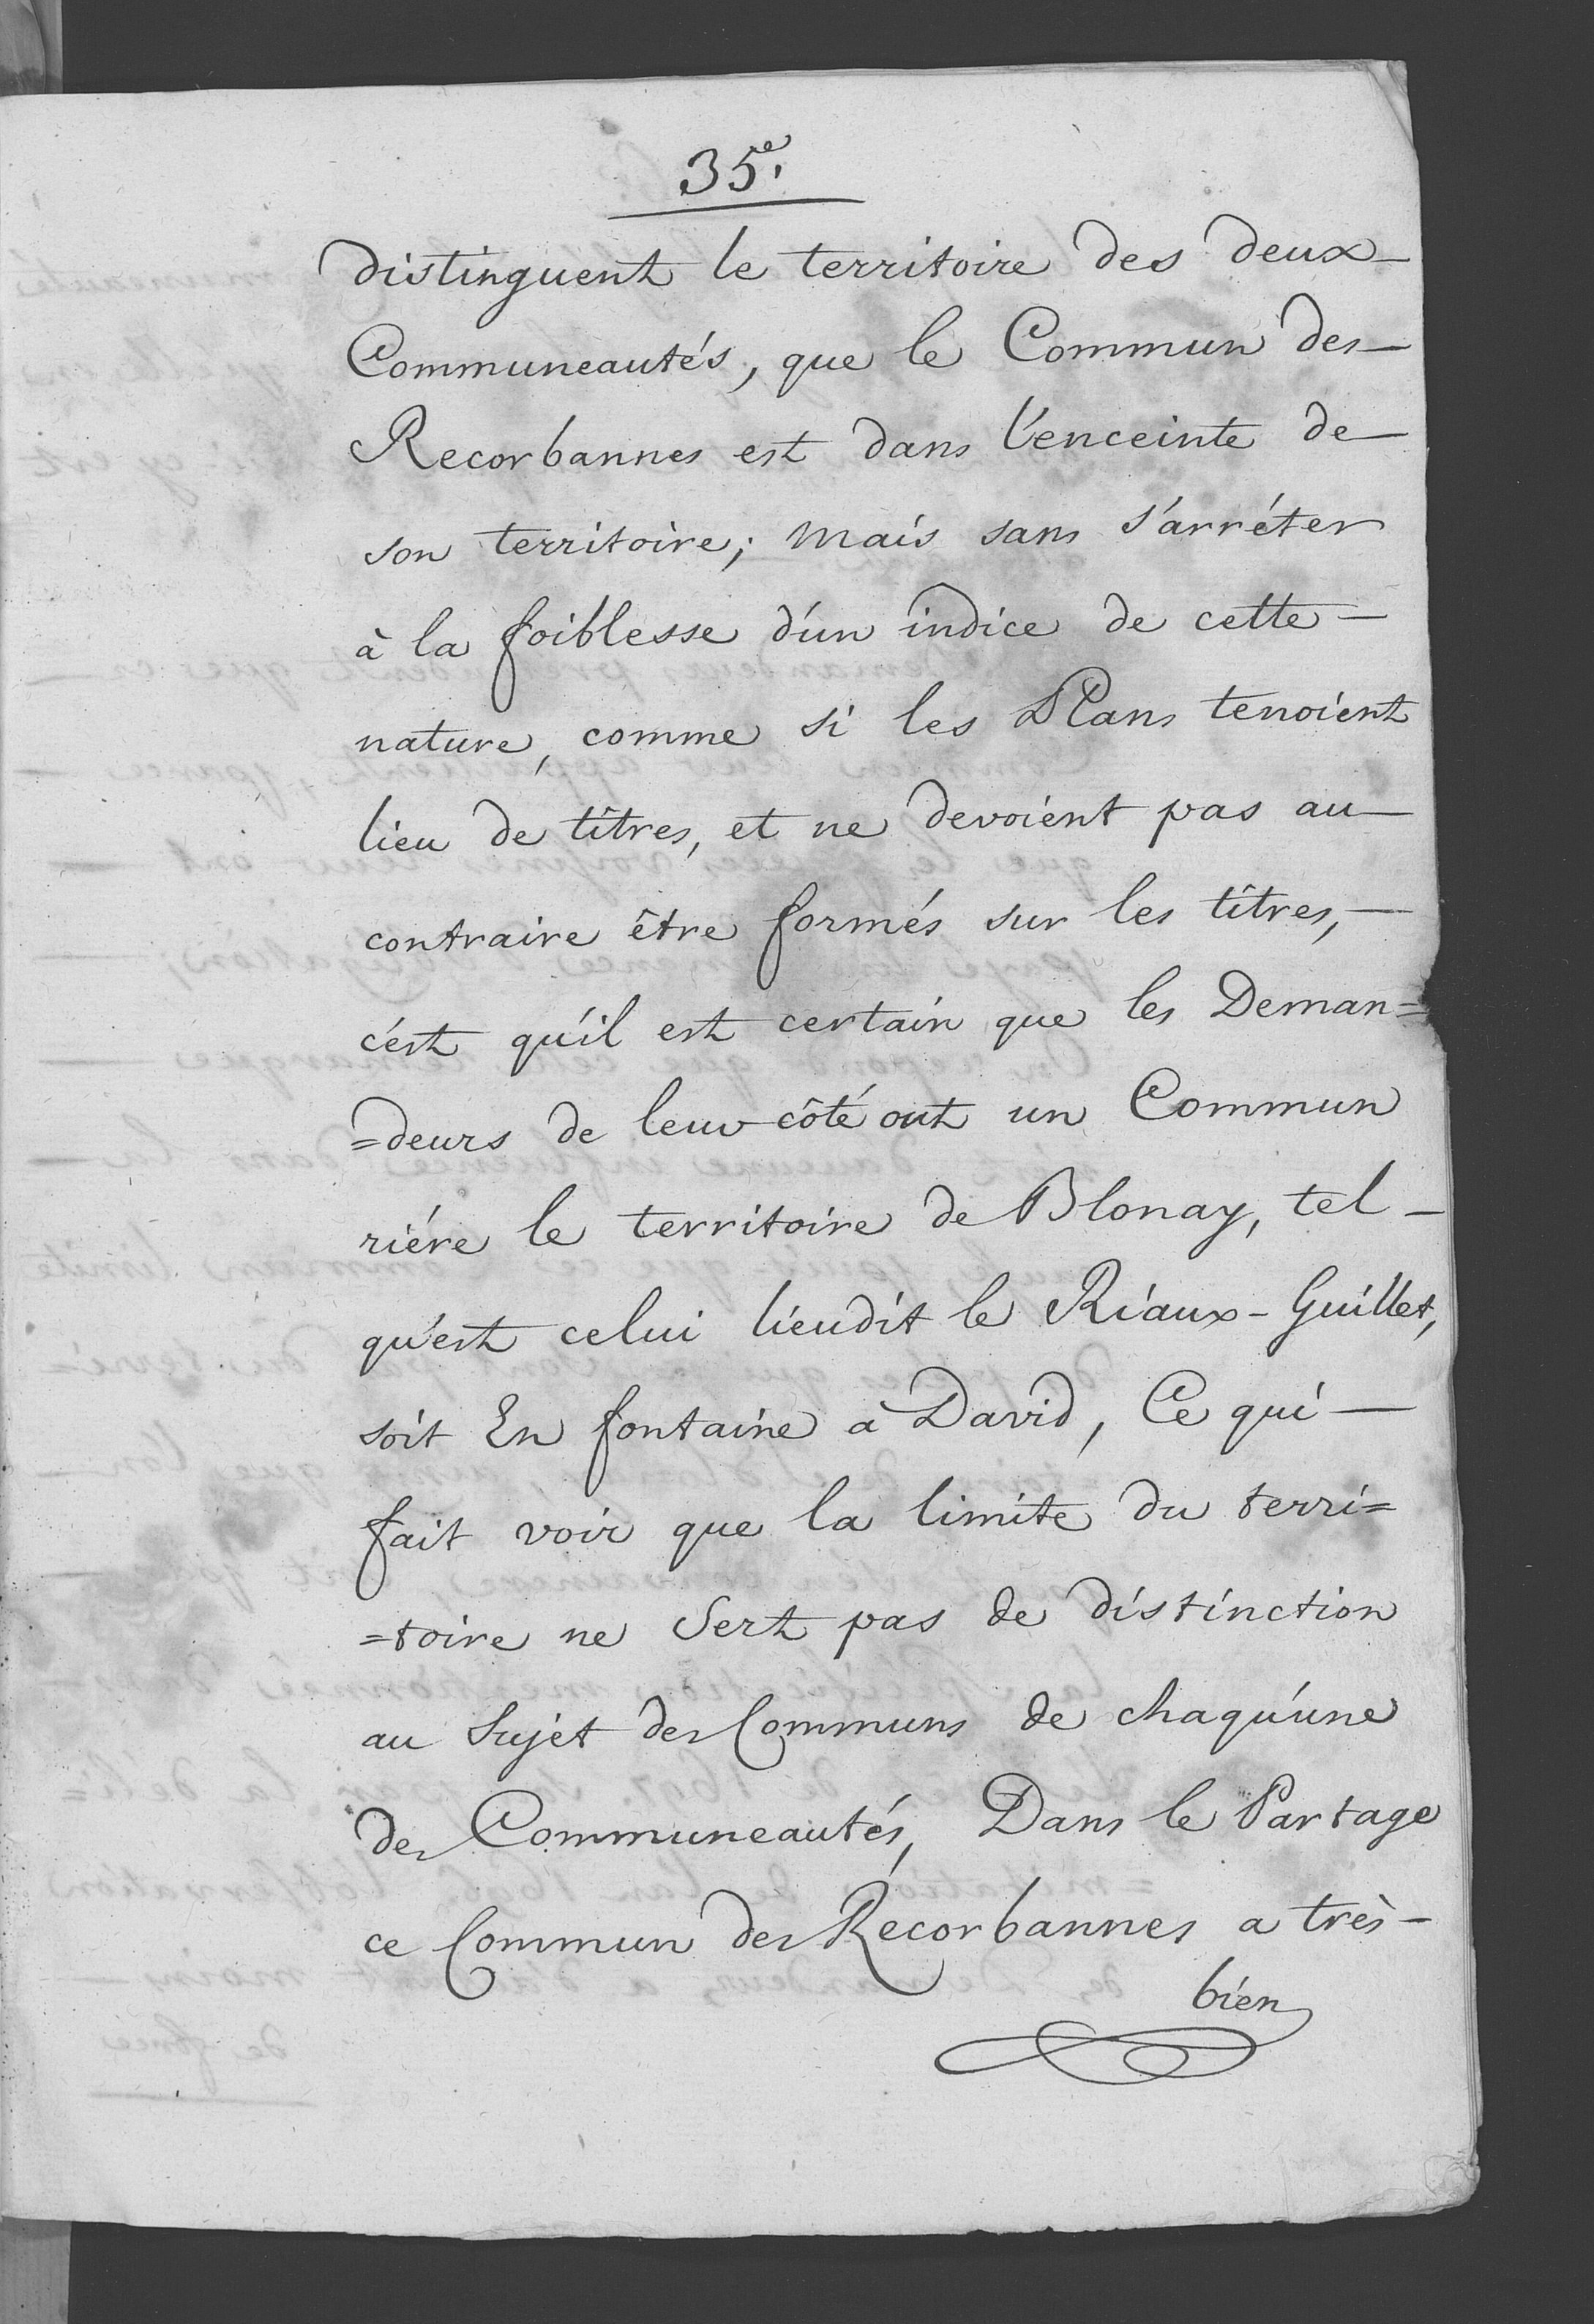 35e.
distinguent le territoire des deux—
Communeautés, que le Commun des—
Recorbannes est dans l'enceinte de—
son territoire; mais sans s'arréter
à la foiblesse d'un indice de cette—
nature, comme si les Plans tenoient
lieu de titres, et ne devoient pas au—
contraire être formés sur les titres,—
c'est qu'il est certain que les Deman=
=deurs de leur côté ont un Commun
riére le territoire de Blonay, tel—
qu'est celui lieudit le Riaux-Guillet,
soit En fontaine à David, Ce qui—
fait voir que la limite du terri=
=toire ne Sert pas de distinction
au Sujet des Communs de chaqu'une
des Communeautés, Dans le Partage
ce Commun des Récorbannes a très—
bien